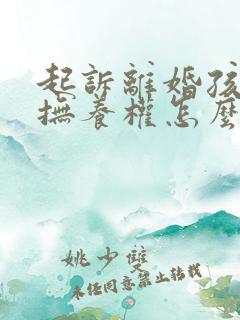 起訴離婚孩
撫養權怎麼
姚少雙
未任同意禁止转载